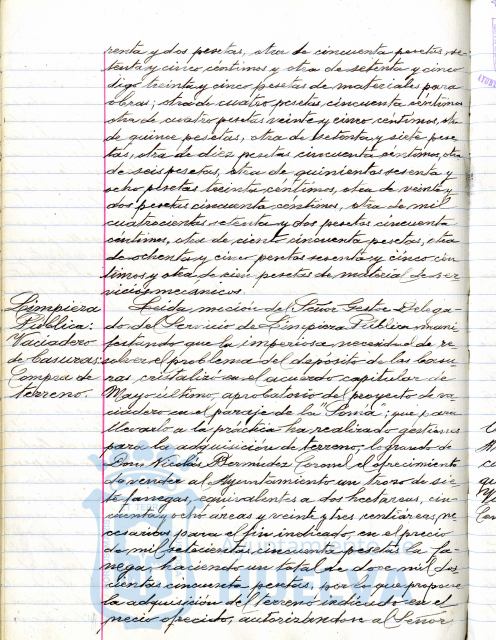 renta y dos pesetas, otra de cincuenta pesetas, se-
tenta y cinco céntimos y otra de setenta y cinco
digo treinta y cinco pesetas de materiales para
obras; otra de cuatro pesetas cincuenta céntimos
otra de cuatro pesetas veinte y cinco céntimos, otra
de quince pesetas, otra de setenta y siete pese-
tas, otra de diez pesetas cincuenta céntimos, otra
de seis pesetas, otra de quinientas sesenta y
ocho pesetas treinta céntimos, otra de veinte y
dos pesetas cincuenta céntimos, otra de mil
cuatrocientas setenta y dos pesetas cincuenta
céntimos, otra de ciento cincuenta pesetas, otra
de ochenta y cinco pesetas sesenta y cinco cén-
timos y otra de cien pesetas de material de ser-
vicios mecánicos.
Limpieza
Pública:
Vaciadero
de basuras:
Compra de
terreno.
Leida moción del Señor Gestor Delega-
do del Servicio de Limpieza Pública mani-
festando que la imperiosa necesidad de re-
solver el problema del depósito de las basu-
ras, cristalizó en el acuerdo capitular de
Mayo último, aprobatorio del proyecto de va-
ciadero en el paraje de la "Loma"; que para
llevarlo a la práctica ha realizado gestiones
para la adquisición de terreno, logrando de
Don Nicolás Bermúdez Coronel el ofrecimiento
de vender al Ayuntamiento un trozo de sie-
te fanegas, equivalentes a dos hectáreas, cin-
cuenta y ocho áreas y veinte y tres centiáreas, ne-
cesarias para el fin indicado, en el precio
de mil setecientas cincuenta pesetas la fa-
nega, haciendo un total de doce mil dos-
cientas cincuenta pesetas, por lo que propone
la adquisición del terreno indicado en el
precio ofrecido, autorizándose al Señor
Ayuntamiento de
HUELVA